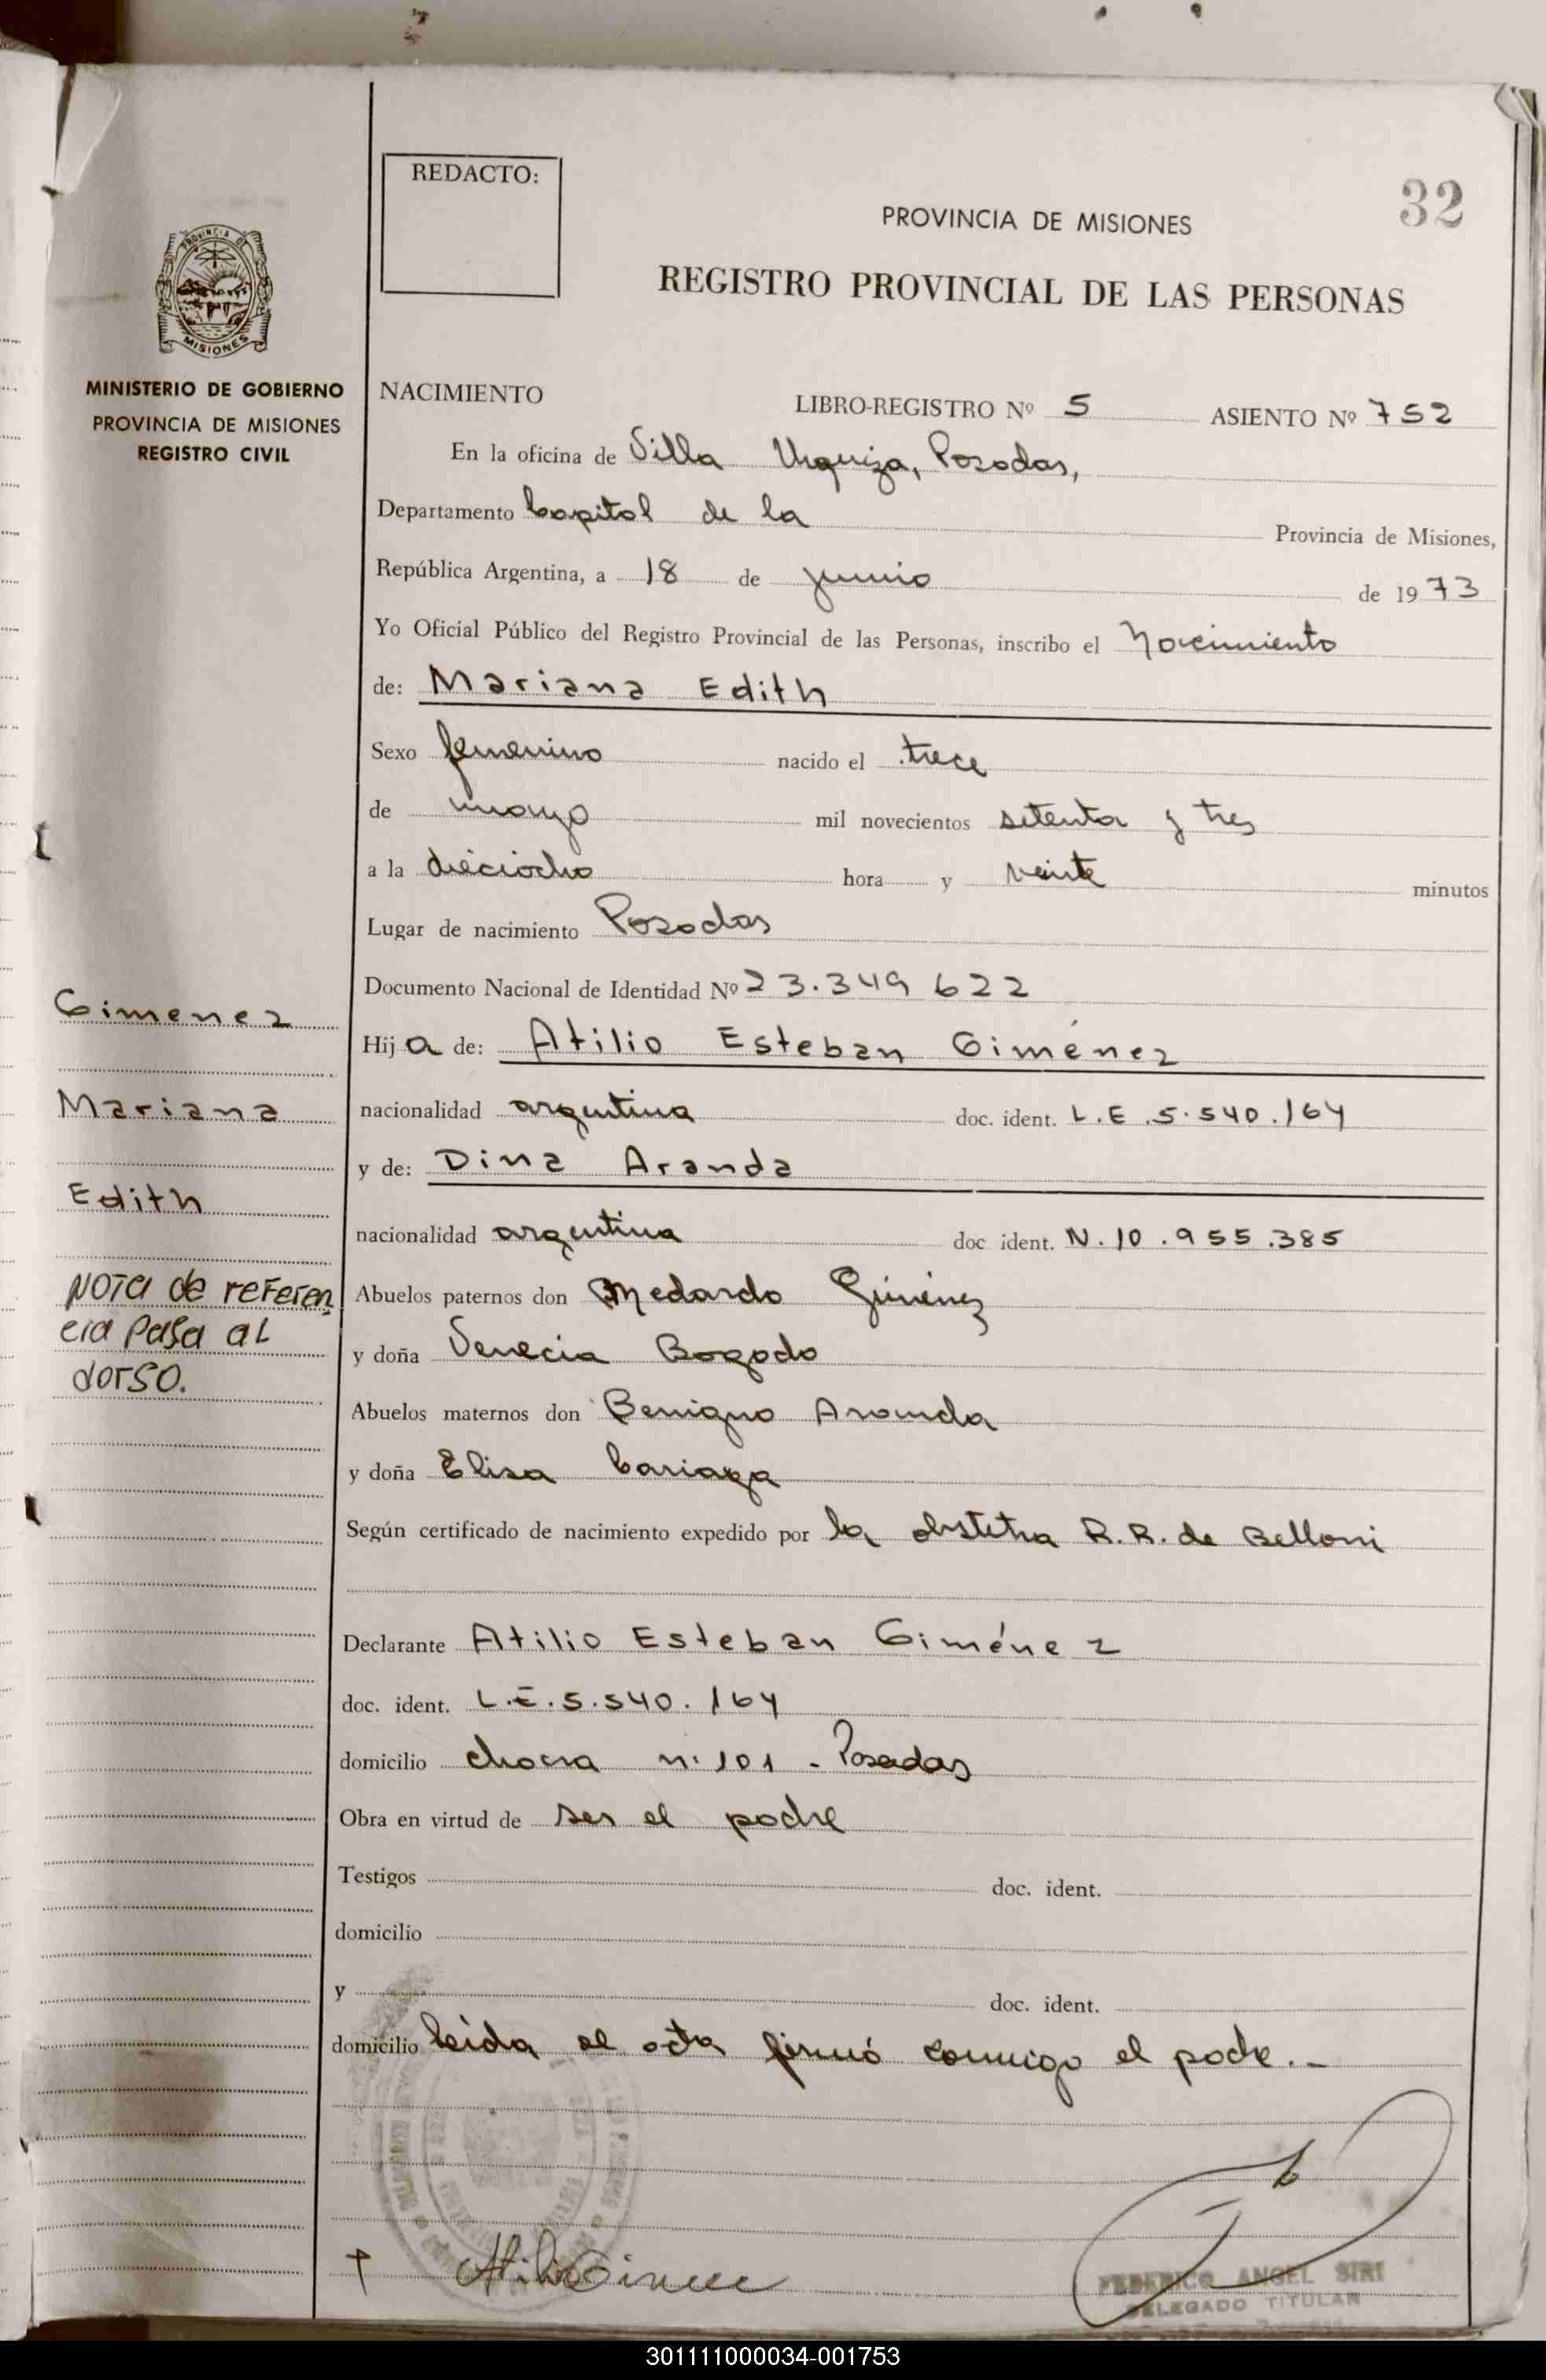 REDACTO:
32
PROVINCIA DE MISIONES
REGISTRO PROVINCIAL DE LAS PERSONAS
PROVINCIA DE
MISIONES
MINISTERIO DE GOBIERNO
PROVINCIA DE MISIONES
REGISTRO CIVIL
NACIMIENTO LIBRO-REGISTRO Nº 5 ASIENTO Nº 752
En la oficina de Villa Urquiza, Posadas,
Departamento Capital de la Provincia de Misiones,
República Argentina, a 18 de junio de 1973
Yo Oficial Público del Registro Provincial de las Personas, inscribo el Nacimiento
de: Mariana Edith
Sexo femenino nacido el trece
de mayo mil novecientos setenta y tres
a la dieciocho hora y veinte minutos
Lugar de nacimiento Posadas
Documento Nacional de Identidad Nº 23.349 622
Hija de: Atilio Esteban Giménez
nacionalidad argentina doc. ident. L.E.5.540.164
y de: Dina Aranda
nacionalidad argentina doc ident. N.10.955.385
Abuelos paternos don Medardo Giménez
y doña Venecia Bogado
Abuelos maternos don Benigno Aranda
y doña Elisa Cariaga
Según certificado de nacimiento expedido por la obstetra R.R. de Belloni
Declarante Atilio Esteban Giménez
doc. ident. L.E.5.540.164
domicilio chacra n. 101 - Posadas
Obra en virtud de ser el padre
Testigos doc. ident.
domicilio
y doc. ident.
domicilio leida el acta firmó conmigo el padre.-
Gimenez
Mariana
Edith
NOTA de referen
cia pasa al
dorso.
FEDERICO ANGEL SIRI
DELEGADO TITULAR
301111000034-001753